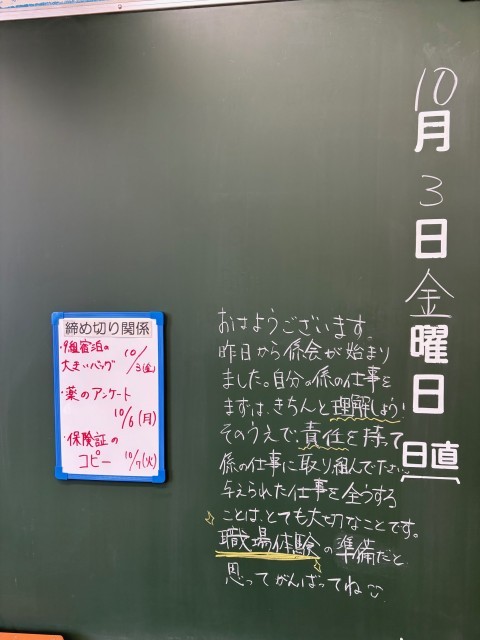 10月3日金曜日
日直
おはようございます。
昨日から係会が始まり
ました。自分の係の仕事を
まずは、きちんと理解しよう!
そのうえで、責任を持って
係の仕事に取り組んでください。
与えられた仕事を全うする
ことは、とても大切なことです。
職場体験の準備だと
思ってがんばってね
締め切り関係
・9組宿泊の
大きいバッグ 10/3(金)
・薬のアンケート
10/6(月)
・保険証の
コピー 10/7(火)